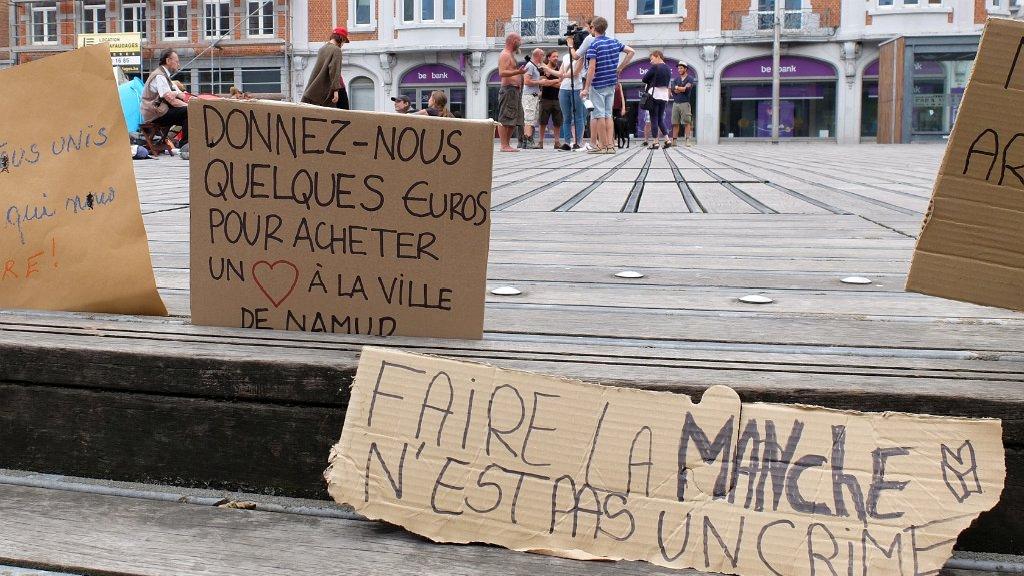 LOCATION
be bank
be bank
US UNIS
qui
RE!
DONNEZ-NOUS
QUELQUES EUROS
POUR ACHETER
UN ♡ À LA VILLE
DE NAMUR
AR
FAIRE LA MANCHE
N'EST PAS UN CRIME